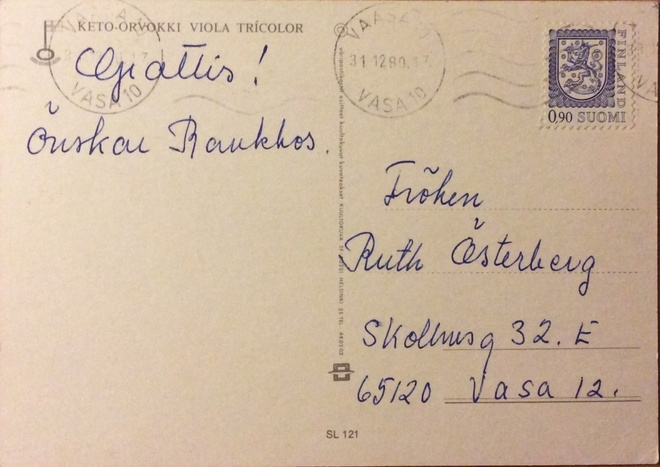 KETO-ORVOKKI VIOLA TRÍCOLOR
VASA 10
VAASA 10
31.12.80.17
VASA 10
FINLAND
0,90 SUOMI
Grattis!
Önskar Rankhos.
Fröken
Ruth Österberg
32. E
65120 Vasa 12.
SL 121